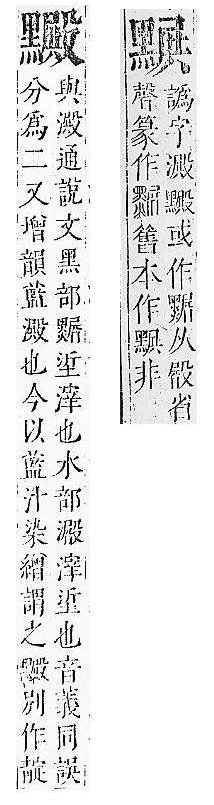 譌字澱或作𪒮从殿省
聲篆作舊本作非
與澱通說文黑部𪒮垽滓也水部澱滓垽也音義同誤
分爲二又增韻藍澱也今以藍汁染繒謂之別作靛